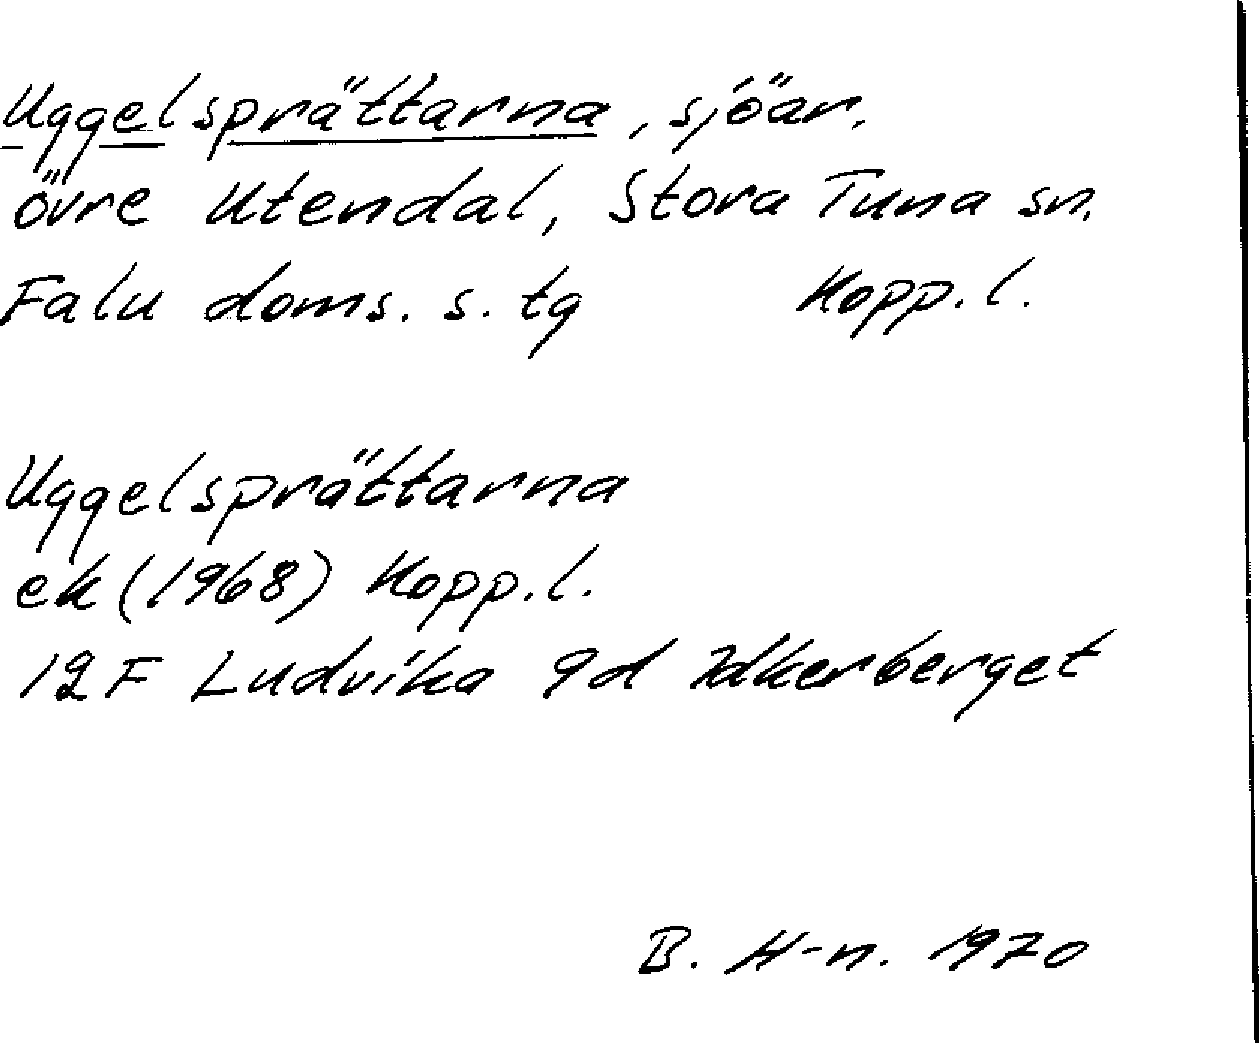 Uggelsprättarna, sjöar.
övre Utendal, Stora Tuna sn.
Falu doms. s. tg Kopp.l.
Uggelsprättarna
ek (1968) Kopp.l.
12F Ludvika 9d Idkerberget
B. H-n. 1970